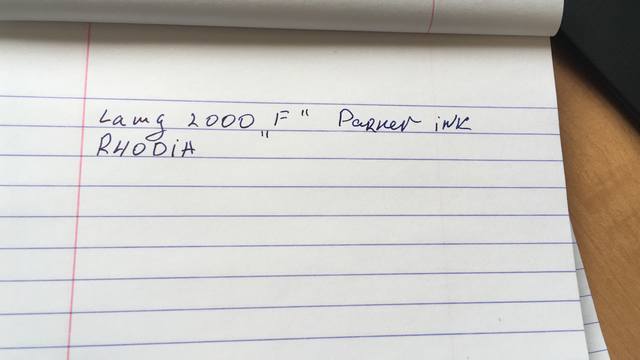 Lamy 2000 "F" Parker ink
RHODiA